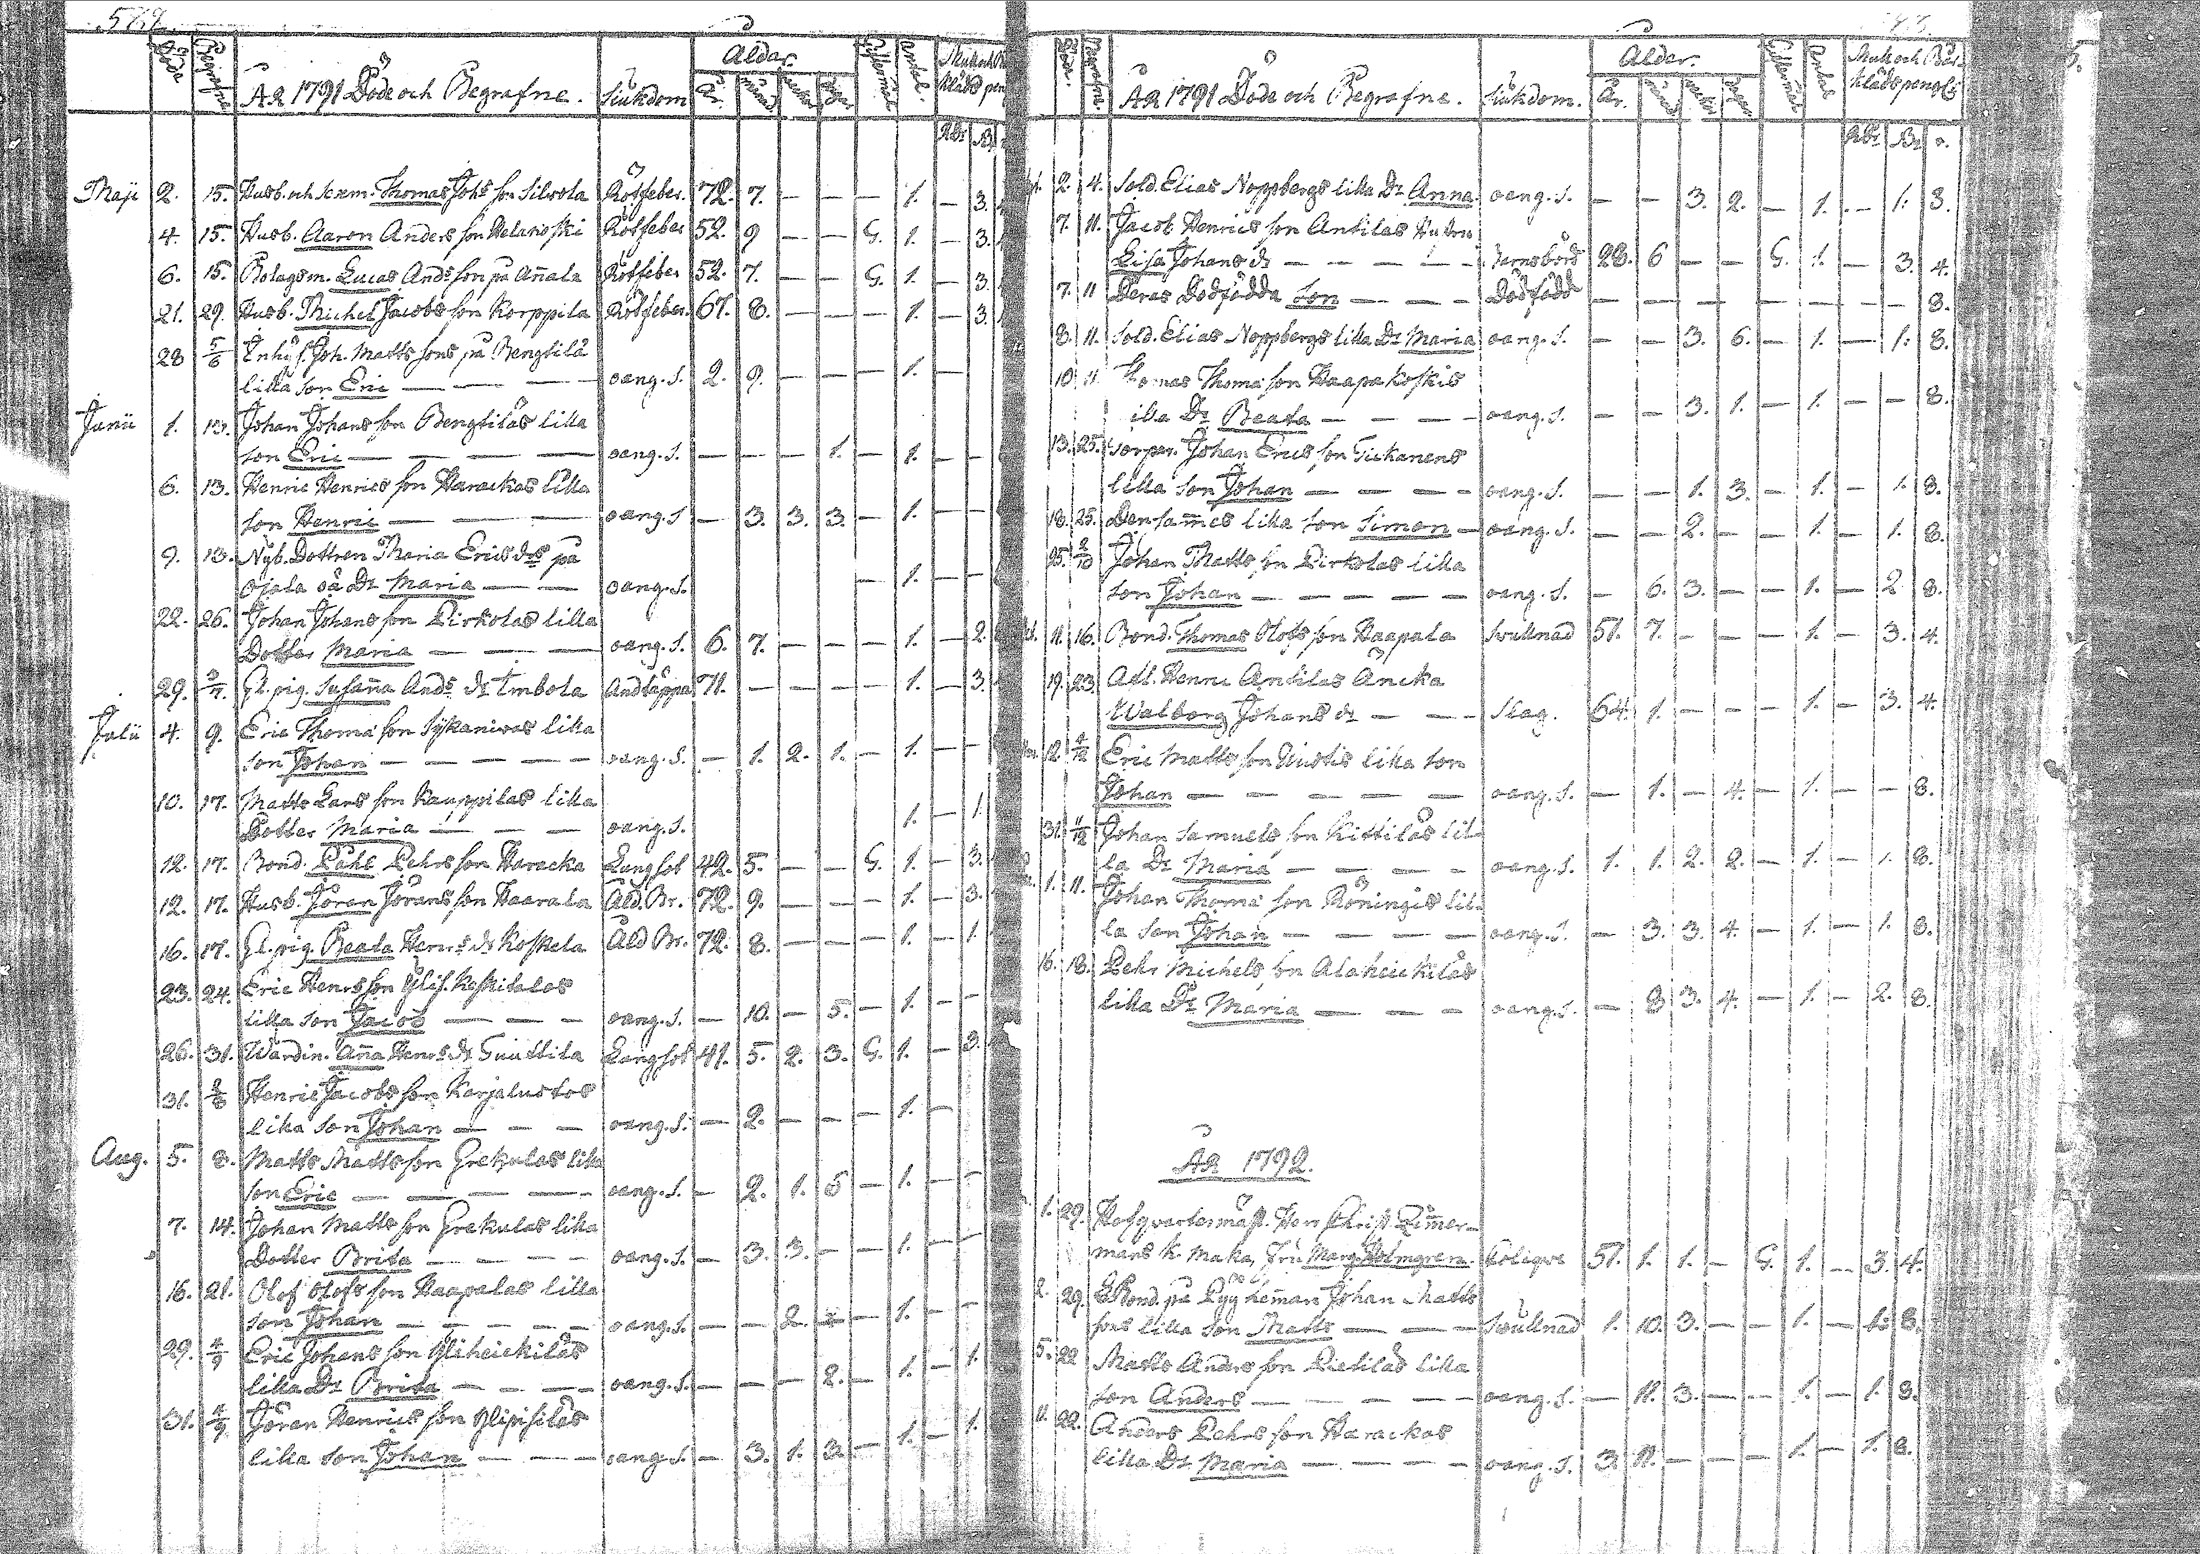 589.
Döde Begrafne ÅR 1791 Döde och Begrafne. Siukdom Ålder. År. månad weckor dagar Gifternål Antal.
Rdr
Maji 2. 15. Husb. och Thomas Johs son Silvola Rötfeber. 72. 7. — — — 1. — 3.
4. 15. Husb. Aaron Anders son Helanoski Rötfeber 52. 9 — — G. 1. — 3.
6. 15. Bolagsm. Lucas Ands son på Añala Rötfeber 52. 7. — — G. 1. — 3.
21. 29. Husb. Michel Jacobs son Korppila Rötfeber. 67. 8. — — — 1. — 3.
28 5/6 Inhys. Joh. Matts sons på Bengtila
lilla son Eric — — — oang. S. 2. 9. — — — 1. —
Junii 1. 13. Johan Johans son Bengtilas lilla
son Eric — — — — oang. S. — — — 1. — 1. —
6. 13. Henric Henrics son Harackas lilla
son Henric — — — oang. S — 3. 3. 3. — 1. —
9. 13. Nyb. Dottren Maria Erics drs på
Ojala oä Dr Maria — — oang. S. — 1. —
22. 26. Johan Johans son Pirkolas lilla
Dotter Maria — — — oang. S. 6. 7. — — — 1. — 2.
29. 3/7. Gl. pig. Susaña Ands dr Imbola Andtäppa 71. — — — — 1. — 3.
Julii 4. 9. Eric Thomæ son Sykaniwas lilla
son Johan — — — — — oang. S. — 1. 2. 1. — 1. — —
10. 17. Matts Lars son Kauppilas lilla
Dotter Maria — — — oang. S. 1. — 1.
12. 17. Bond. Påhl Pehrs son Haracka Lungsot 42. 5. — — G. 1. — 3.
12. 17. Husb. Jöran Jörans son Haarala Åld. Br. 72. 9. — — — 1. — 3.
16. 17. Gl. pig. Beata Henrs dr Koskela Åld Br. 72. 8. — — — 1. — 1.
23. 24. Eric Henrs son Ylis. Koskitalos
lilla son Jacob — — — oang. S. — 10. — 5. — 1. — —
26. 31. Wärdin. Aña Henrs dr Suuttila Lungsot 41. 5. 2. 3. G. 1. — 3.
31. 2/8 Henric Jacobs son Karjalustos
lilla son Johan — — — oang. S. — 2. — — — 1. —
Aug. 5. 8. Matts Matts son Grekulas lilla
son Eric — — — — oang. S. — 2. 1. 5 — 1. — —
7. 14. Johan Matts son Grekulas lilla
Dotter Brita — — — — oang. S. — 3. 3. — — 1. — —
16. 21. Olof Olofs son Haapalas lilla
son Johan — — — — — oang. S. — — 2. — 1. — —
29. 4/9 Eric Johans son Yliheickilas
lilla Dr Brita — — — — oang. S. — — — 2. — 1. — 1.
31. 4/9 Jöran Henrics son Ylipisilas
lilla son Johan — — — oang S. — 3. 1. 3. — 1. — 1.
ÅR 1791 Döde och Begrafne. Siukdom. Ålder. År. månad weckor dagar Gifternål Antal
Rdr
2. 4. Sold. Elias Noppbergs lilla Dr Anna. oang. S. — — 3. 2. — 1. — 1. 8.
7. 11. Jacob Henrics son Antilas Hustru
Lisa Johans dr — — — — Barnsbörd 28. 6 — — G. 1. — 3. 4.
7. 11 Deras Dödfödda son — — — Dödfödd — — — — — — — — 8.
8. 11. Sold. Elias Noppbergs lilla Dr Maria oang. S. — — 3. 6. — 1. — 1. 8.
10 11. Thomas Thomæ son Haapakoskis
lilla Dr Beata — — — — oang. S. — — 3. 1. — 1. — — 8.
13. 25. Johan Erics son Tickanens
lilla son Johan — — — — oang. S. — — 1. 3. — 1. — 1. 8.
18. 25. Den sañes lilla son Simon — oang. S. — — 2. — — 1. — 1. 8.
25. 2/10 Johan Matts son Pirkolas lilla
son Johan — — — — — oang. S. — 6. 3. — — 1. — 2. 8.
11. 16. Bond. Thomas Olofs son Haapala Swullnad 51. 7. — — — 1. — 3. 4.
19. 23. Afl. Henric Antilas Äncka
Walborg Johans dr — — — Slag. 64. 1. — — — 1. — 3. 4.
12. 4/12 Eric Matts son lilla son
Johan — — — — — oang. S. — 1. — 4. — 1. — — 8.
31. 11/12 Johan Samuels son Kittilas lil-
la Dr Maria — — — — oang. S. 1. 1. 2. 2. — 1. — 1. 8.
1. 11. Johan Thomæ son Röningis lil-
la son Johan — — — — oang. S. — 3. 3. 4. — 1. — 1. 8.
16. 18. Pehr Michels son Alaheickilas
lilla Dr Maria — — — oang. S. — 8 3. 4. — 1. — 2. 8.
ÅR 1792.
1. 29. Hofqvartermäst. Herr Christ. Zimer-
mans k. maka, Fru Marg. Holmgren. Colique 51. 1. 1. — G. 1. — 3. 4.
2. 29. Bond. på heman Johan Matts
sons lilla son Matts — — — Swullnad 1. 10. 3. — — 1. — 1. 8.
5. 22 Matts Anders son Pietilas lilla
son Anders — — — — oang. S. — 11. 3. — — 1. — 1. 8.
11. 22. Anders Pehrs son Harackas
lilla Dr Maria — — — — oang. S. 3. 11. — — — 1. — 1. 8.